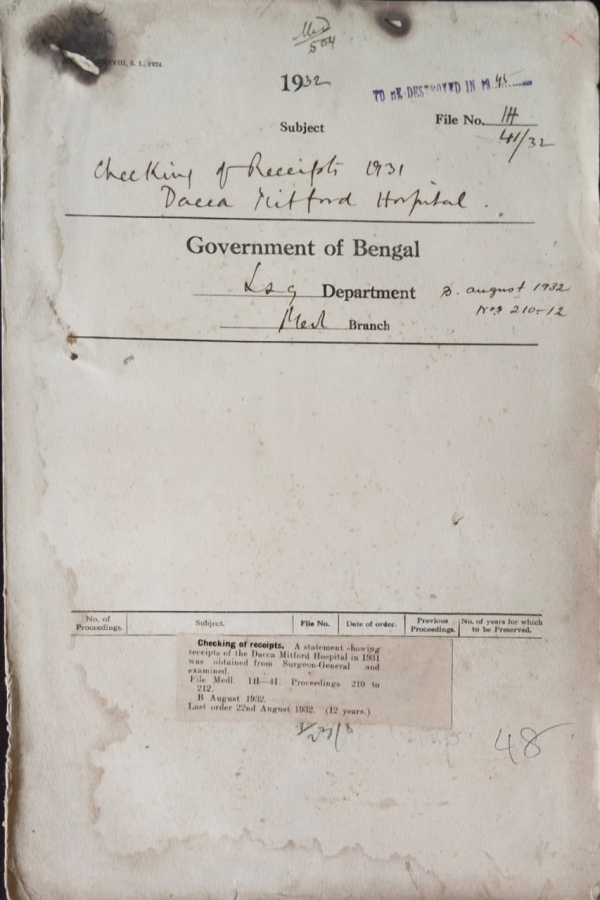 Med
504
XVIII, S. I., 1924.
1932
TO BE DESTROYED IN 1945
File No. 1H
41/32
Subject
Checking of Receipts 1931
Dacca Mitford Hospital.
Government of Bengal
LSG Department
B. August 1932
Nos 210-12
Med Branch
No. of Proceedings.
Subject.
File No.
Date of order.
Previous Proceedings.
No. of years for which to be Preserved.
Checking of receipts. A statement showing
receipts of the Dacca Mitford Hospital in 1931
was obtained from Surgeon-General and
examined.
File Medl. 1H—41. Proceedings 210 to
212.
B August 1932.
Last order 22nd August 1932. (12 years.)
48